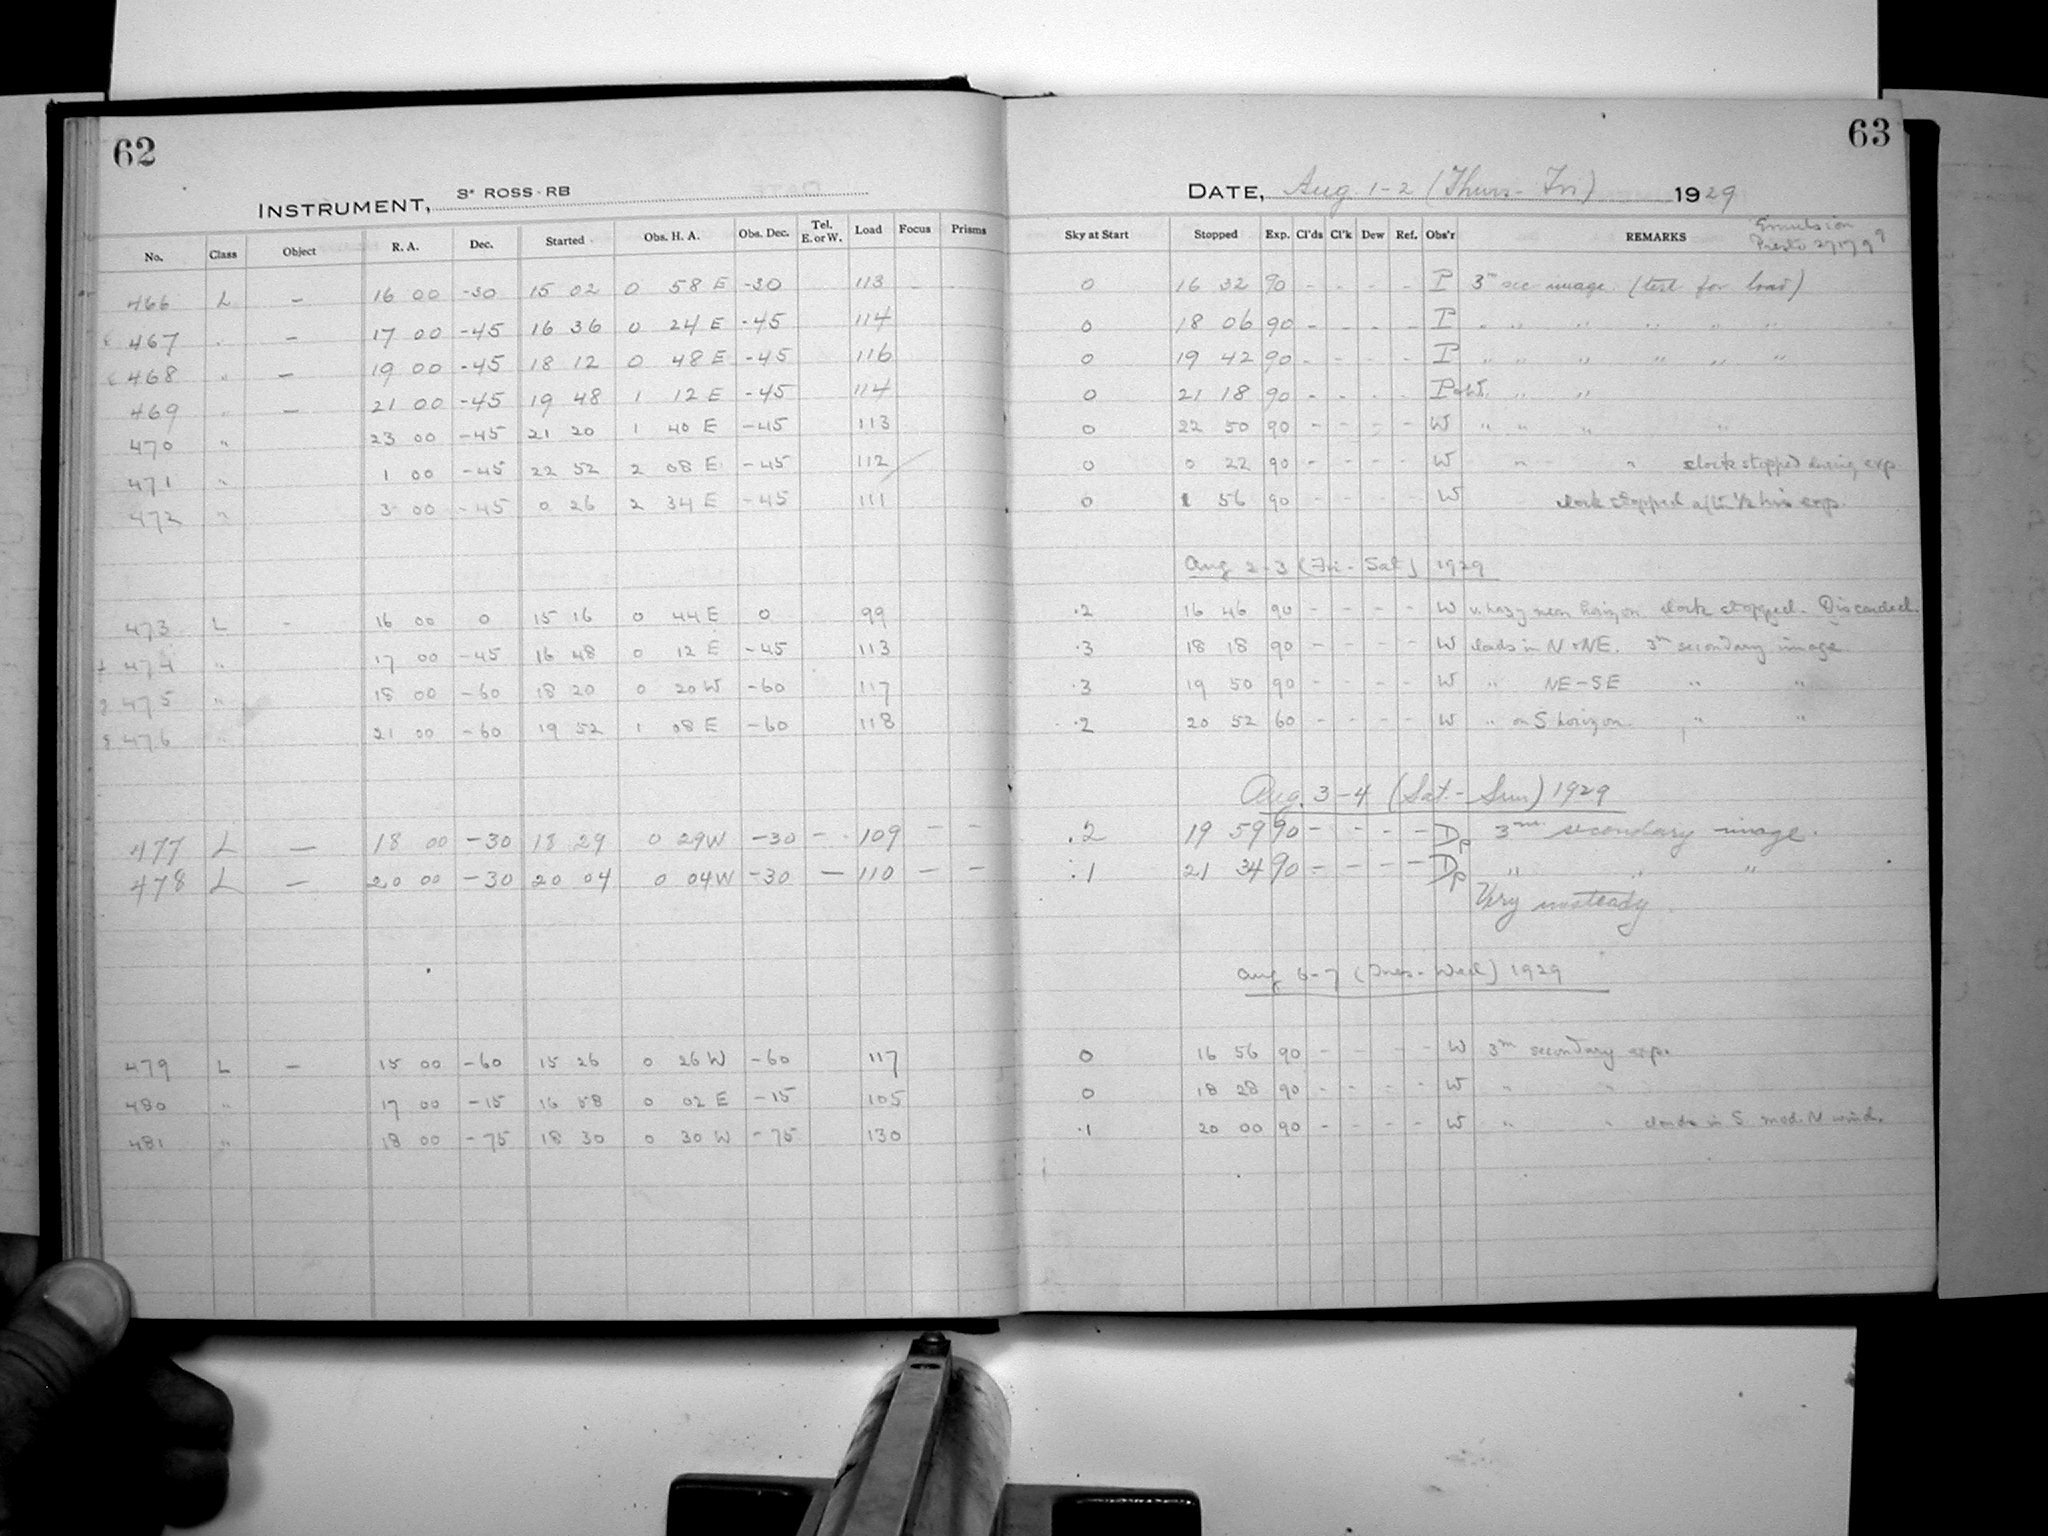 62
INSTRUMENT, 3" ROSS-RB
No. Class Object R. A. Dec. Started Obs. H. A. Obs. Dec. Tel. E. or W. Load Focus Prisms
466 L – 16 00 -30 15 02 0 58 E -30 113 – –
467 " – 17 00 -45 16 36 0 24 E -45 114
468 " – 19 00 -45 18 12 0 48 E -45 116
469 " – 21 00 -45 19 48 1 12 E -45 114
470 " 23 00 -45 21 20 1 40 E -45 113
471 " 1 00 -45 22 52 2 08 E -45 112
472 " 3 00 -45 0 26 2 34 E -45 111
473 L - 16 00 0 15 16 0 44 E 0 99
474 " 17 00 -45 16 48 0 12 E -45 113
475 " 18 00 -60 18 20 0 20 W -60 117
476 " 21 00 -60 19 52 1 08 E -60 118
477 L – 18 00 -30 18 29 0 29 W -30 – 109 – –
478 L – 20 00 -30 20 04 0 04 W -30 – 110 – –
479 L – 15 00 -60 15 26 0 26 W -60 117
480 " 17 00 -15 16 58 0 02 E -15 105
481 " 18 00 -75 18 30 0 30 W -75 130
63
DATE, Aug. 1-2 (Thurs-Fri) 1929
Sky at Start Stopped Exp. Cl'ds Cl'k Dew Ref. Obs'r REMARKS Emulsion
0 16 32 90 - - - - P 3m sec image (test for load)
0 18 06 90 - - - - P " " " " " "
0 19 42 90 - - - - P " " " " " "
0 21 18 90 - - - - P+W. " "
0 22 50 90 - - - - W " " " "
0 0 22 90 - - - - W " " clock stopped during exp
0 1 56 90 - - - - W clock stopped after 1/2 hrs exp.
Aug 2-3 (Fri-Sat) 1929
.2 16 46 90 - - - - W v. hazy near horizon clock stopped. Discarded.
.3 18 18 90 - - - - W clouds in N+NE. 3m secondary image
.3 19 50 90 - - - - W " NE-SE " "
.2 20 52 60 - - - - W " on S horizon. " "
Aug. 3-4 (Sat.-Sun) 1929
.2 19 59 90 - - - - Dp 3m secondary image.
.1 21 34 90 - - - - Dp " " "
Very unsteady.
Aug 6-7 (Tues-Wed) 1929
0 16 56 90 - - - - W 3m secondary exp.
0 18 28 90 - - - - W " "
.1 20 00 90 - - - - W " " clouds in S mod. N wind.